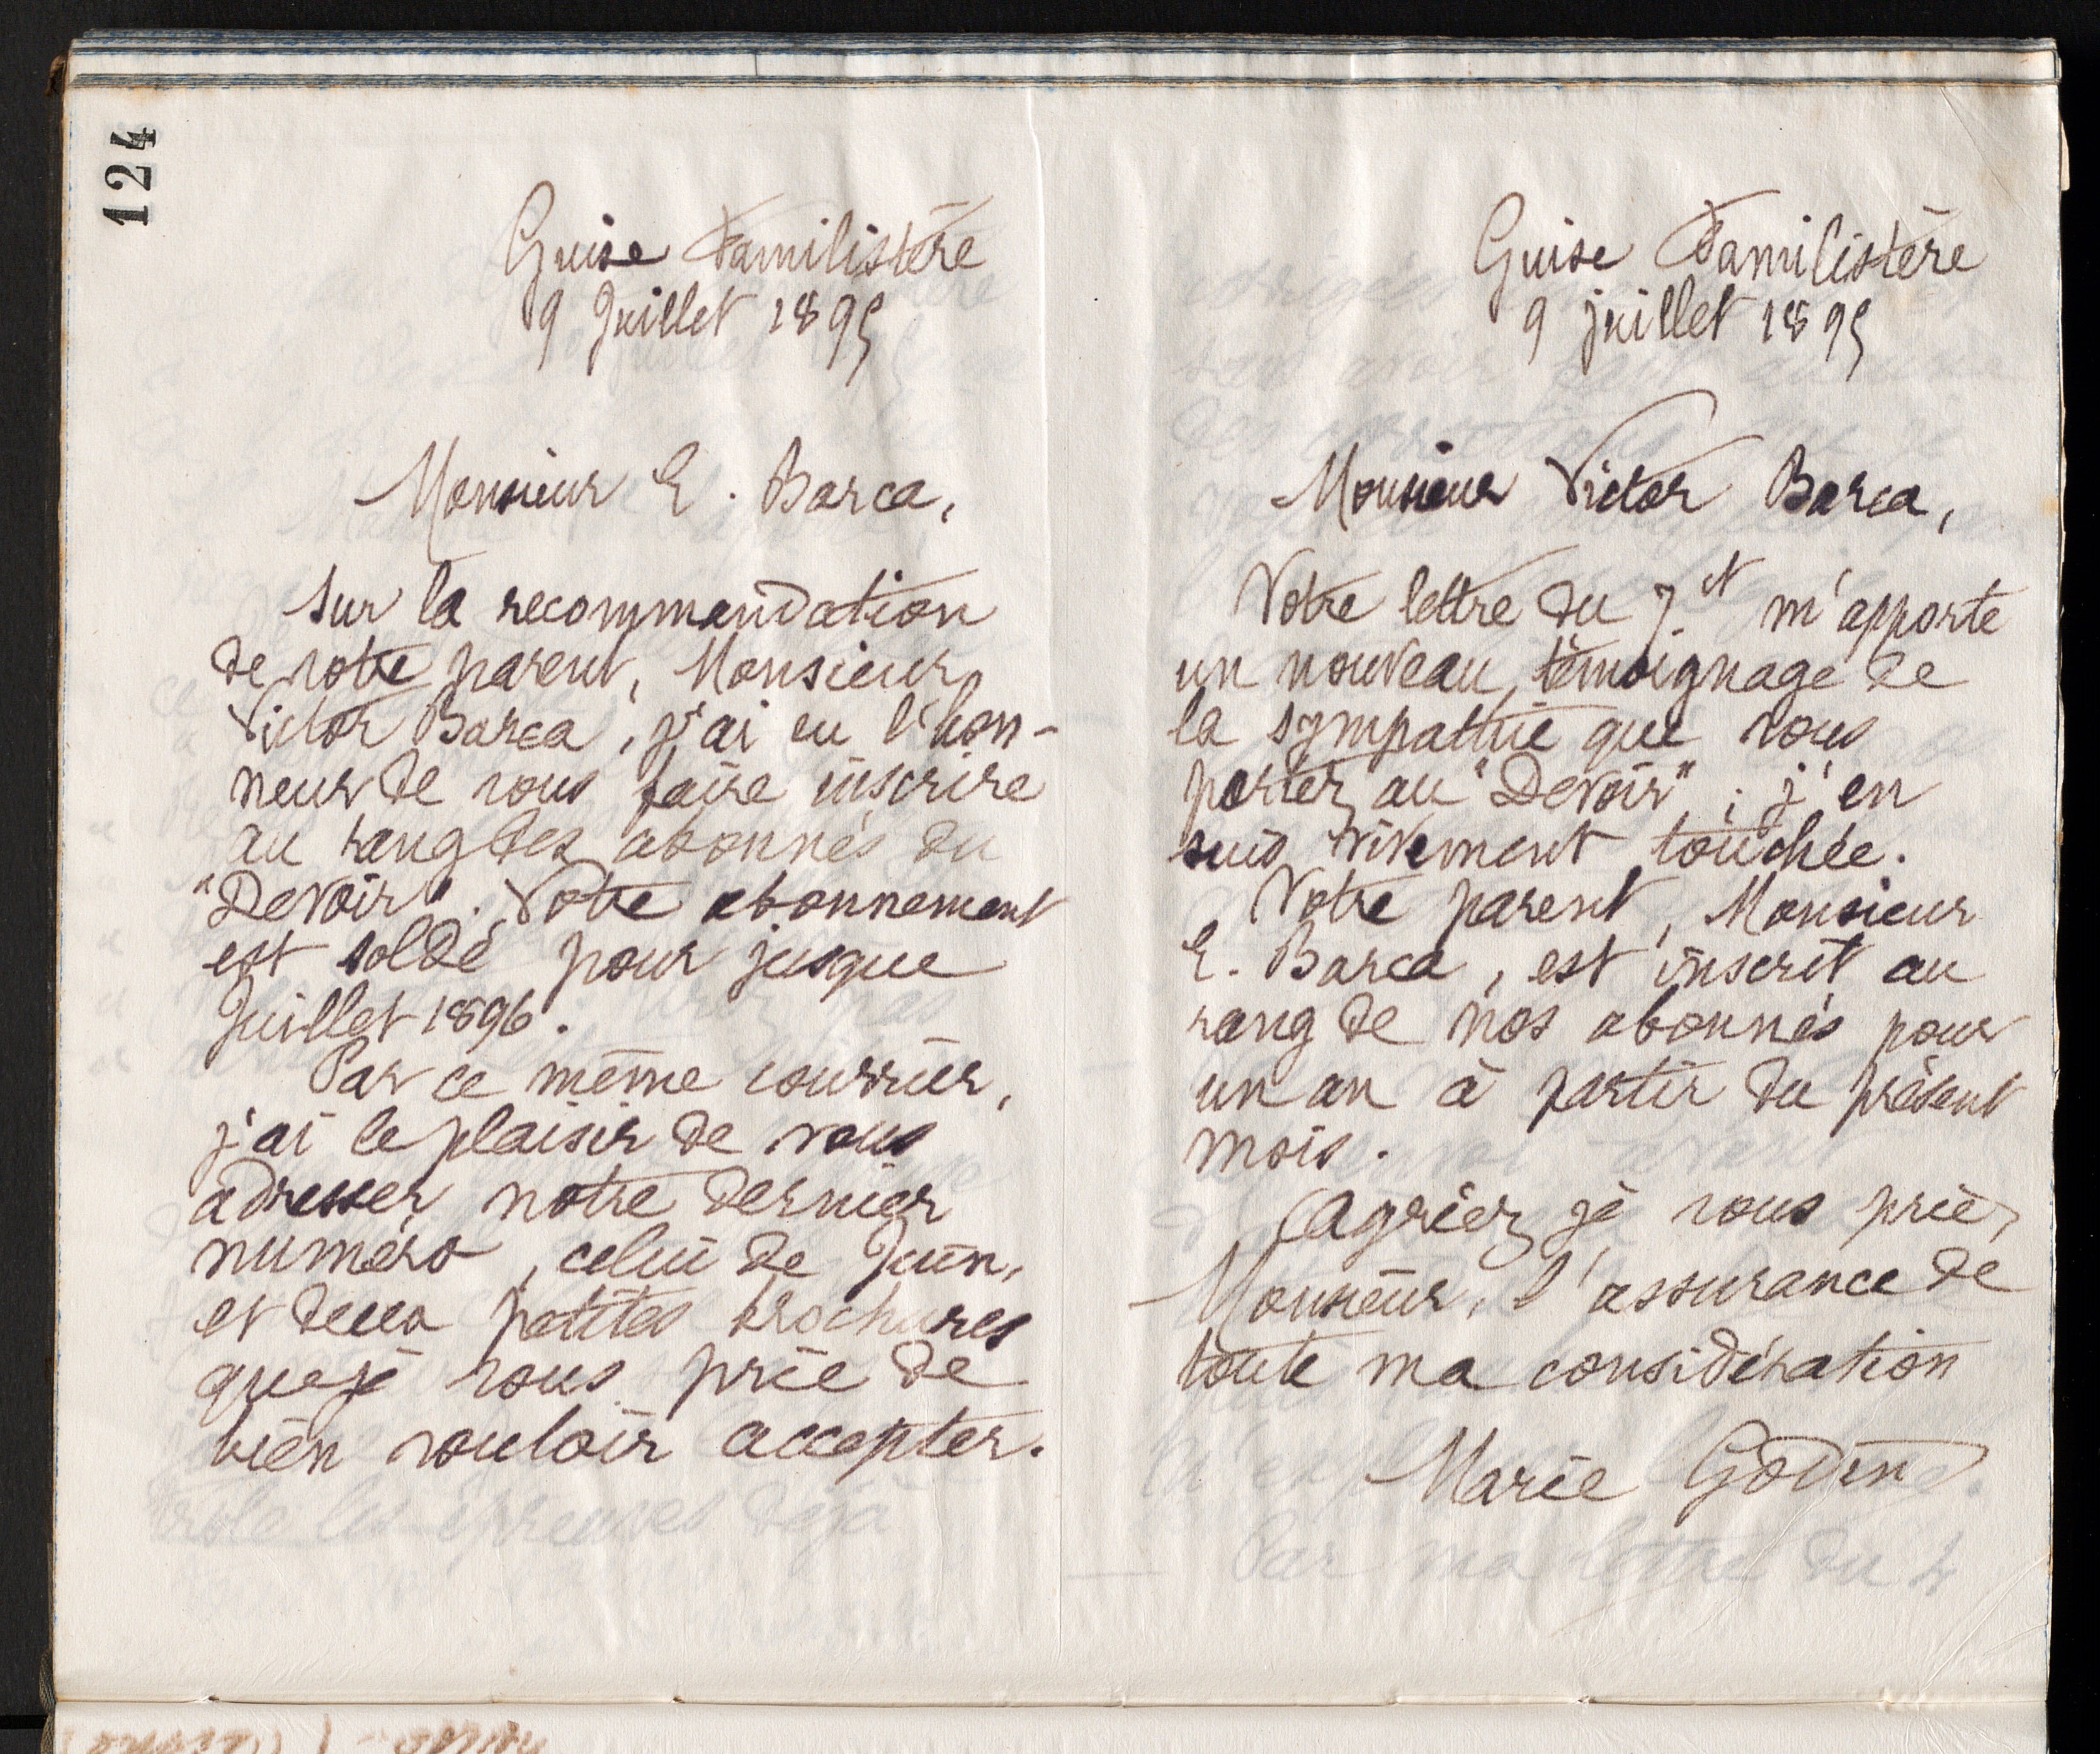 124
Guise Familistère
9 Juillet 1895
Monsieur E. Barca,
Sur la recommandation
de votre parent, Monsieur
Victor Barca, j'ai eu l'hon-
neur de vous faire inscrire
au rang des abonnés du
"Devoir". Votre abonnement
est soldé pour jusque
Juillet 1896.
Par ce même courrier,
j'ai le plaisir de vous
adresser notre dernier
numéro, celui de Juin,
et deux petites brochures
que je vous prie de
bien vouloir accepter.
Guise Familistère
9 juillet 1895
Monsieur Victor Barca,
Votre lettre du 7 ct m'apporte
un nouveau témoignage de
la sympathie que vous
portez au "Devoir"; j'en
suis vivement touchée.
Votre parent, Monsieur
E. Barca, est inscrit au
rang de nos abonnés pour
un an à partir du présent
mois.
Agréez je vous prie,
Monsieur, l'assurance de
toute ma considération
Marie Godin